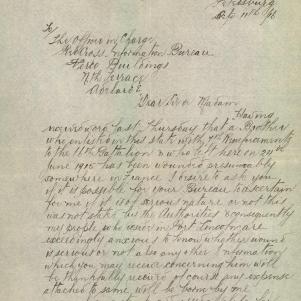 Petersburg
Oct 11th/16
To
The Officer in Charge
Red Cross Information Bureau
Verco Buildings
Nth Terrace
Adelaide
Dear Sir or Madam
Having
received word last Thursday that a Brother
who enlisted in this state with 9th Reinforcements
to the 11th Battalion & who left here on 23rd
June 1915 has been wounded presumably
somewhere in France I desire to ask you
if it is possible for your Bureau to ascertain
for me if it is of serious nature or not this
was not stated by the Authorities & consequently
my people who reside in Port Lincoln are
exceedingly anxious to know whether wound
is serious or not also any other information
which you may receive concerning him will
be thankfully received of course any expense
attached to same will be borne by me